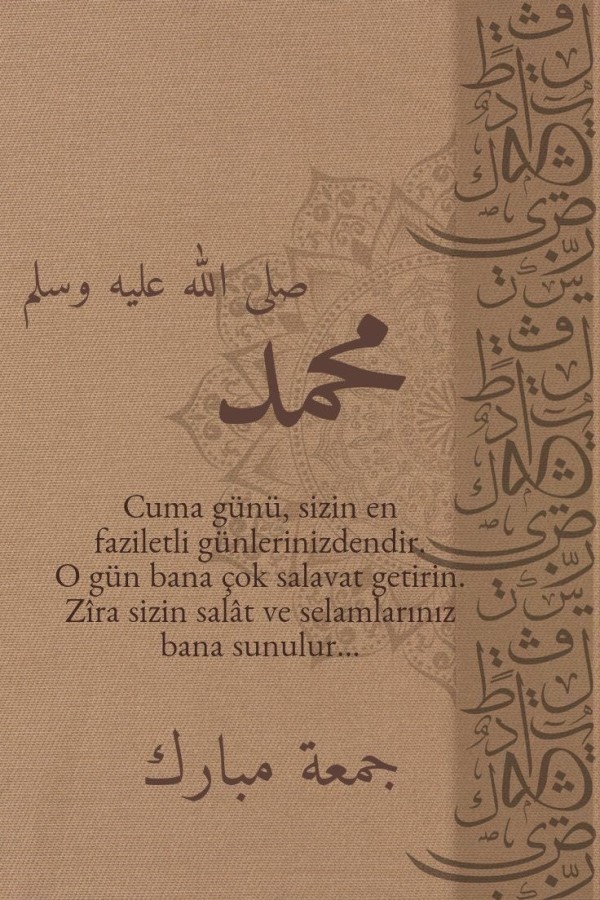 صلى الله عليه وسلم
محمد
Cuma günü, sizin en
faziletli günlerinizdendir.
O gün bana çok salavat getirin.
Zîra sizin salât ve selamlarınız
bana sunulur...
جمعة مبارك